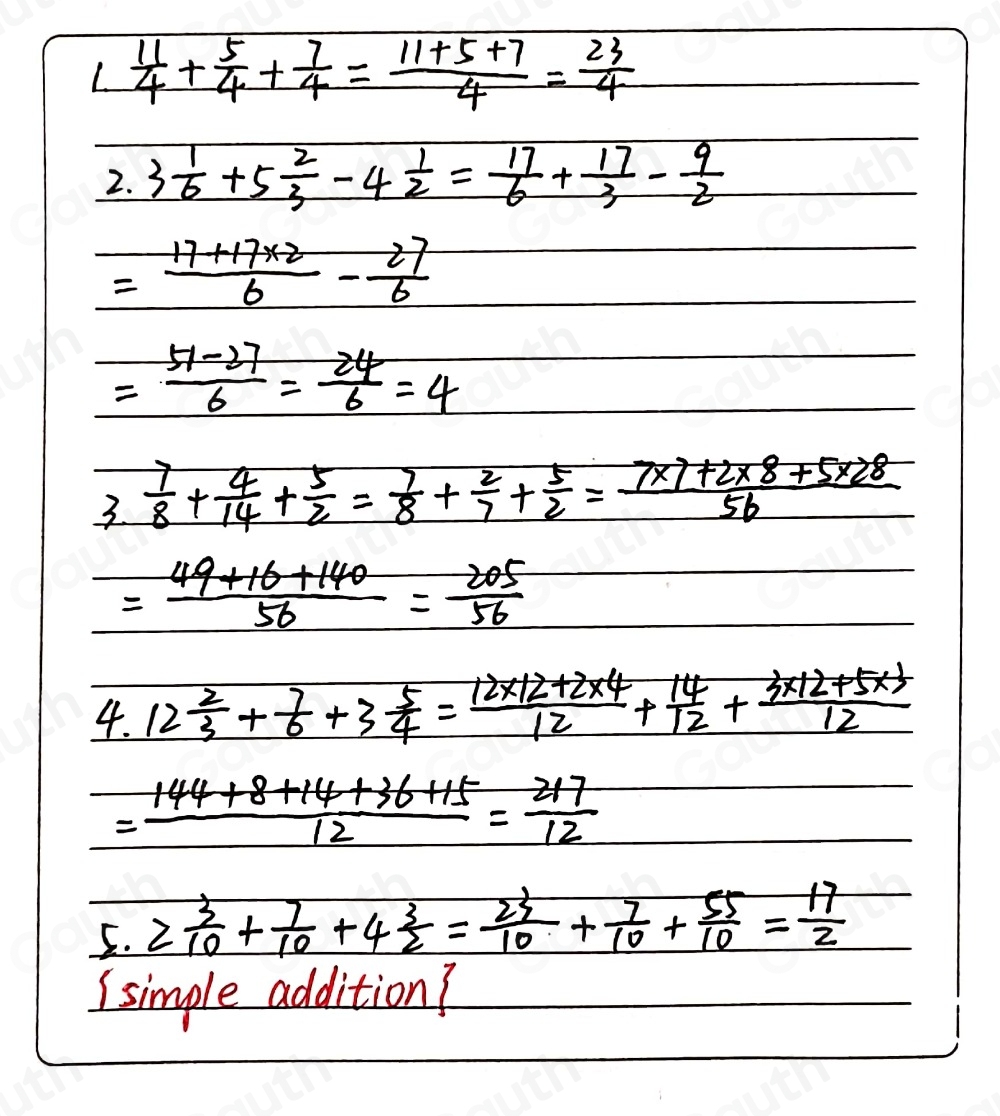 1. 11/4 + 5/4 + 7/4 = (11+5+7)/4 = 23/4
2. 3 1/6 + 5 2/3 - 4 1/2 = 17/6 + 17/3 - 9/2
= (17+17×2)/6 - 27/6
= (51-27)/6 = 24/6 = 4
3. 7/8 + 4/14 + 5/2 = 7/8 + 2/7 + 5/2 = (7×7+2×8+5×28)/56
= (49+16+140)/56 = 205/56
4. 12 2/3 + 7/6 + 3 5/4 = (12×12+2×4)/12 + 14/12 + (3×12+5×3)/12
= (144+8+14+36+15)/12 = 217/12
5. 2 3/10 + 7/10 + 4 3/2 = 23/10 + 7/10 + 55/10 = 17/2
{simple addition}
Gauth